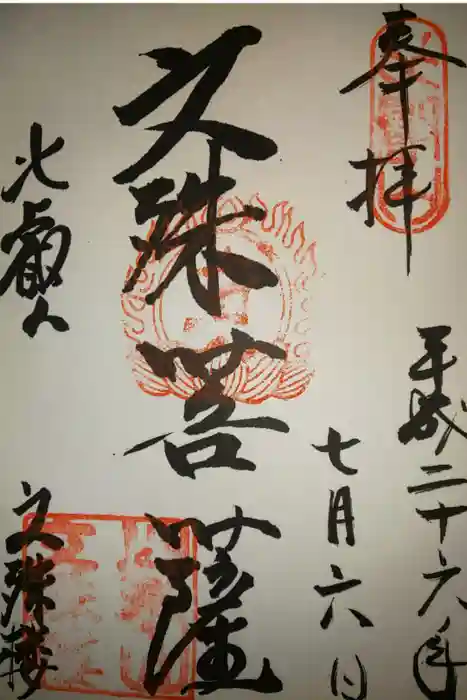 奉拝
平成二十六年
七月六日
文殊菩薩
比叡山
文殊楼